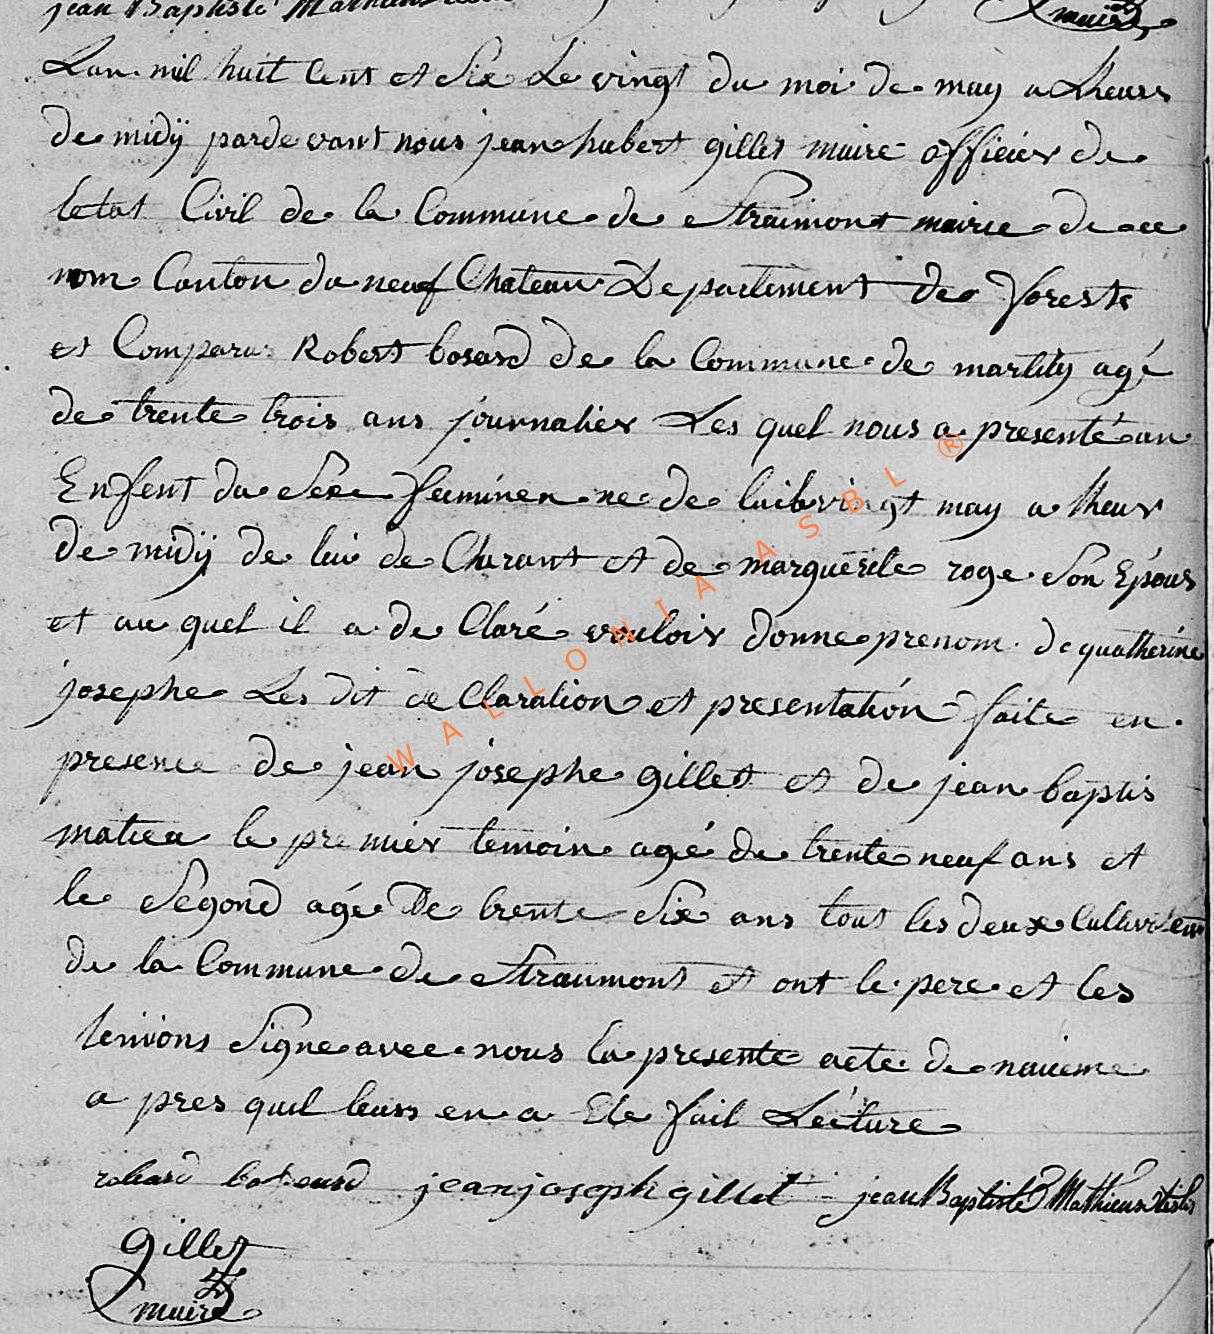 jean Baptiste Mathieu
maire
Lan mil huit Cent et Six Le vingt du moi de may a Lheurs
de midÿ parde vant nous jean hubert gillet maire officier de
letat Civil de la Commune de Straimont mairie de ce
nom Canton du neuf Chateau Departement des Forests
et Comparus Robert bosard de la Commune de martilÿ agé
de trente trois ans journalier Les quel nous a presenté un
Enfent du Sexe feminen ne de vingt may a lheur
de midÿ de lui de Clarant et de marguerite roge Son Epous
et au quel il a de Claré vouloir donne prenom de quatherine
josephe Les dit de Claration et presentation faite en
presence de jean josephe gillet et de jean baptis
matieu le premier temoin agé de trente neuf ans et
le Segond agé De trente Six ans tout les deux Cultivateur
de la Commune de Straumont et ont le pere et les
temions Signe avec nous la presente acte de
a pres quil leurs en a Ete fait Lecture
robard jean joseph gillet jean Baptiste Mathieu
gillet
maire
WALLONIA ASBL ®